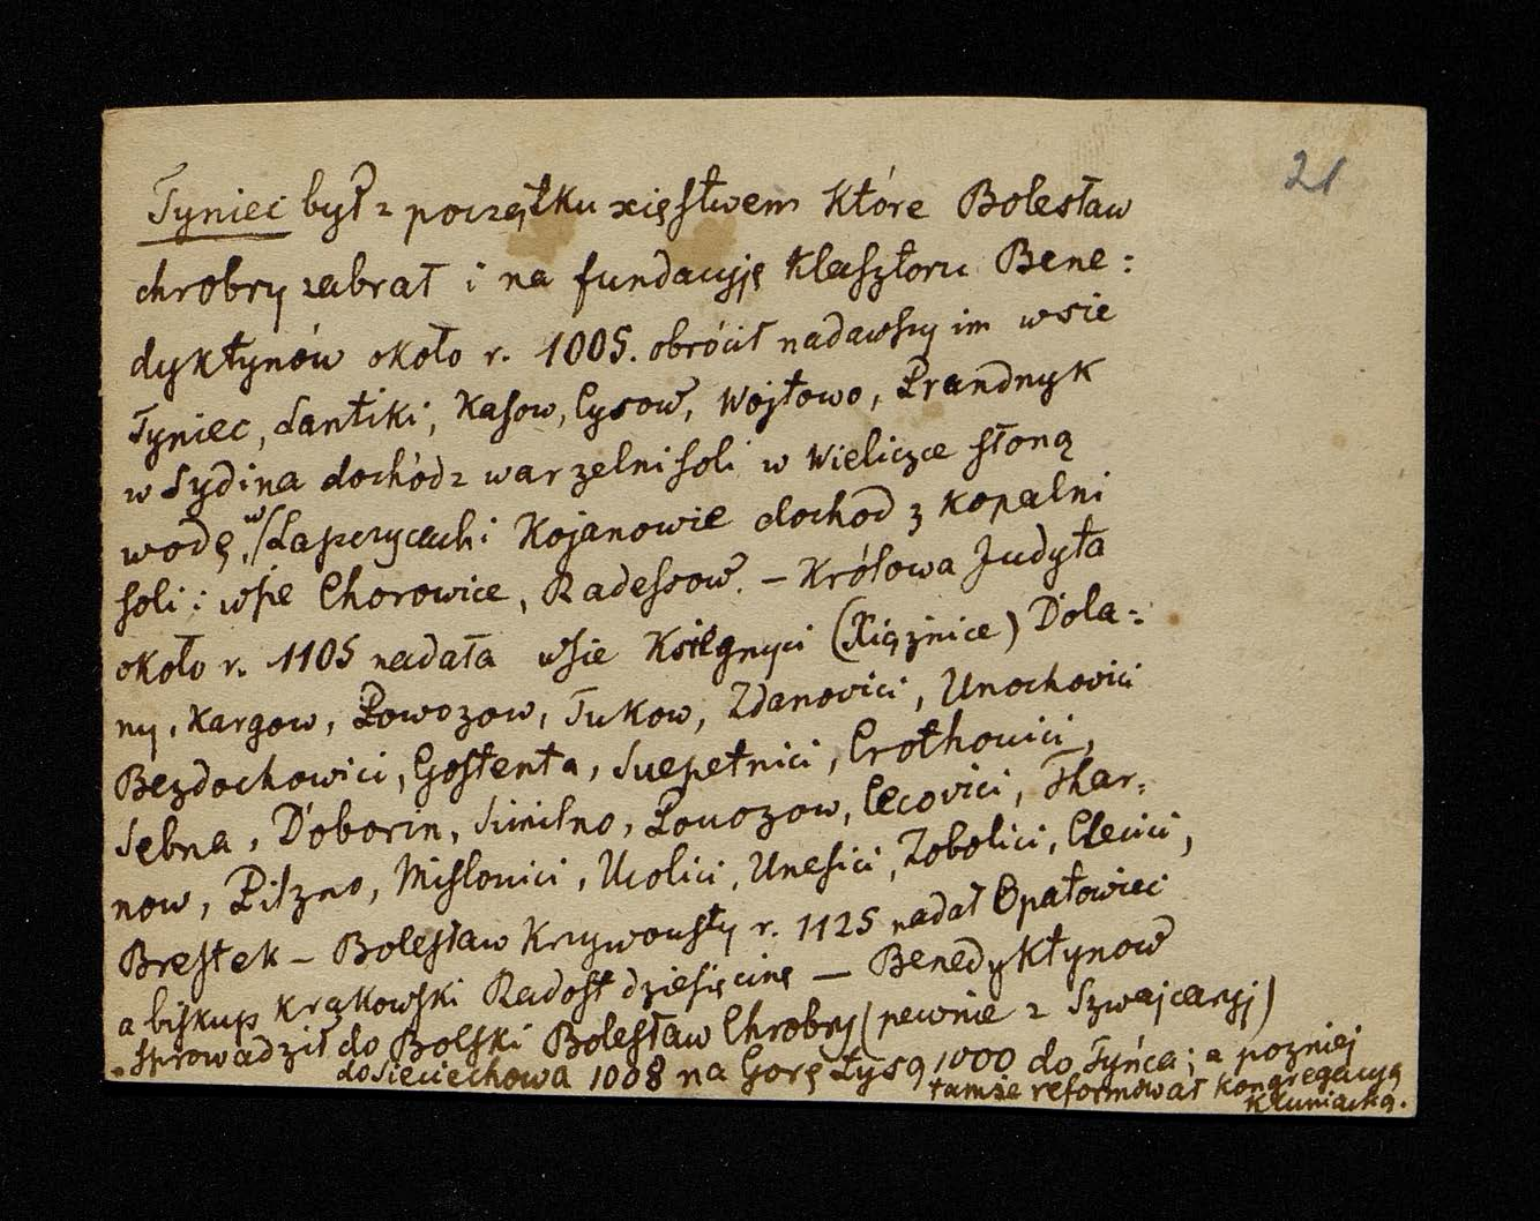 21
Tyniec był z początku xięstwem które Bolesław
chrobry zabrał i na fundacyję klasztoru Bene:
dyktynów około r. 1005. obrócił nadawszy im wsie
Tyniec, Lantiki, Kasow, Cysow, Wojtowo, Prandnyk
w Sydina dochód z warzelni soli w Wieliczce słoną
wodę, w Łapczycach i Kojanowie dochod z kopalni
soli: wsie Chorowice, Radessow. – Królowa Judyta
około r. 1105 nadała wsie Ksiegnyci (Xiążnice) Dola-:
ny, Kargow, Powozow, Tukow, Zdanovici, Unochovici
Bezdochowici, Gostenta, Suepetnici, Crothouici,
Sebna, Doborin, Similno, Pouozow, Cecovici, Thar-:
now, Pilzno, Mislouici, Ucolici, Unesici, Zobolici, Clecici,
Brestek – Bolesław Krzywousty r. 1125 nadał Opatowiec
a biskup krakowski Radost dziesięcinę – Benedyktynow
sprowadził do Polski Bolesław Chrobry (pewnie z Szwajcaryj)
do Sieciechowa 1008 na Gorę Łysą 1000 do Tyńca; a pozniej
tamże reformował kongregacyą
Kluniacką.